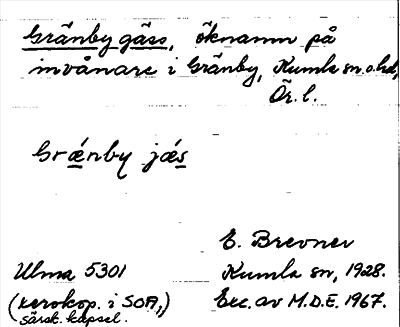 Gränby gäss, öknamn på
invånare i Gränby, Kumla sn. o. hd,
Ör. l.
Grǽnby jǽs
E. Brevner
Ulma 5301 Kumla sn, 1928.
(xerokop. i SOFA,) Exc. av M.D.E. 1967.
särsk. kapsel.